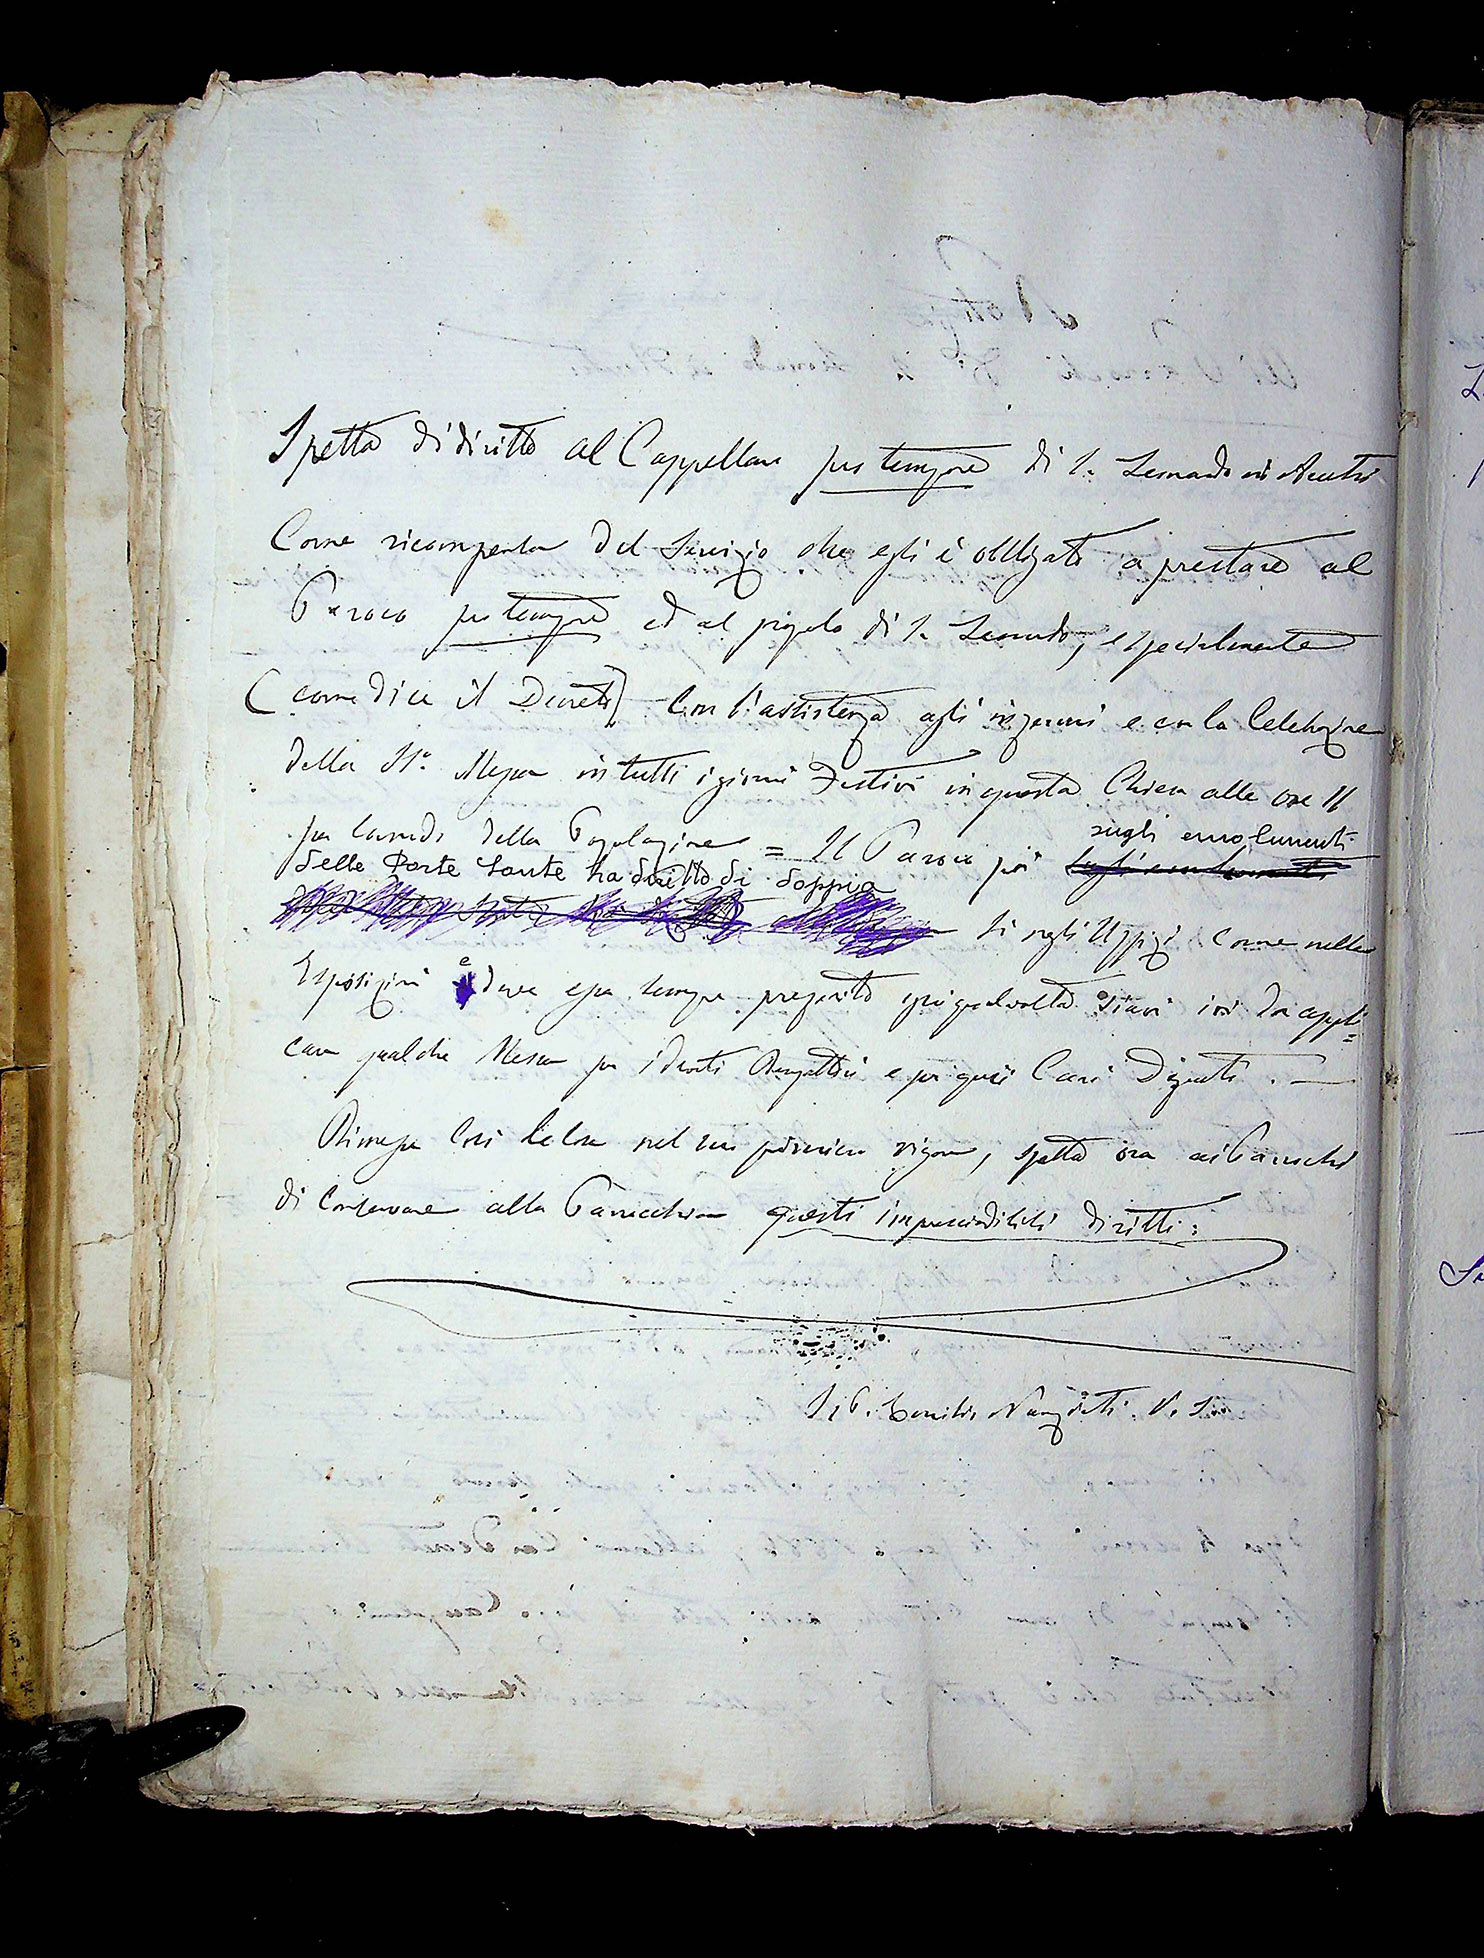 Spetta di diritto al Cappellano pro tempore di S. Leonardo in Arcetri
Come ricompensa del Servizio che egli è obbligato a prestare al
Paroco pro tempore ed al popolo di S. Leonardo, e specialmente
(come dice il Decreto) con l'assistenza agli infermi e con la Celebrazione
della SS.a Messa in tutti i giorni Festivi in questa Chiesa alle ore 11
per comodo della Popolazione = Il Paroco poi
sugli emolumenti
delle Porte Sante ha diritto di doppia
sì negli Uffizi come nelle
Esposizioni e deve essere sempre preferito ogni qualvolta siavi ivi da appli=
care qualche Messa per i devoti e per quei Cari Defunti. —
Rimessa così la cosa nel suo primiero vigore, spetta ora ai Parochi
di Conservare alla Parrocchia questi imprescindibili diritti.